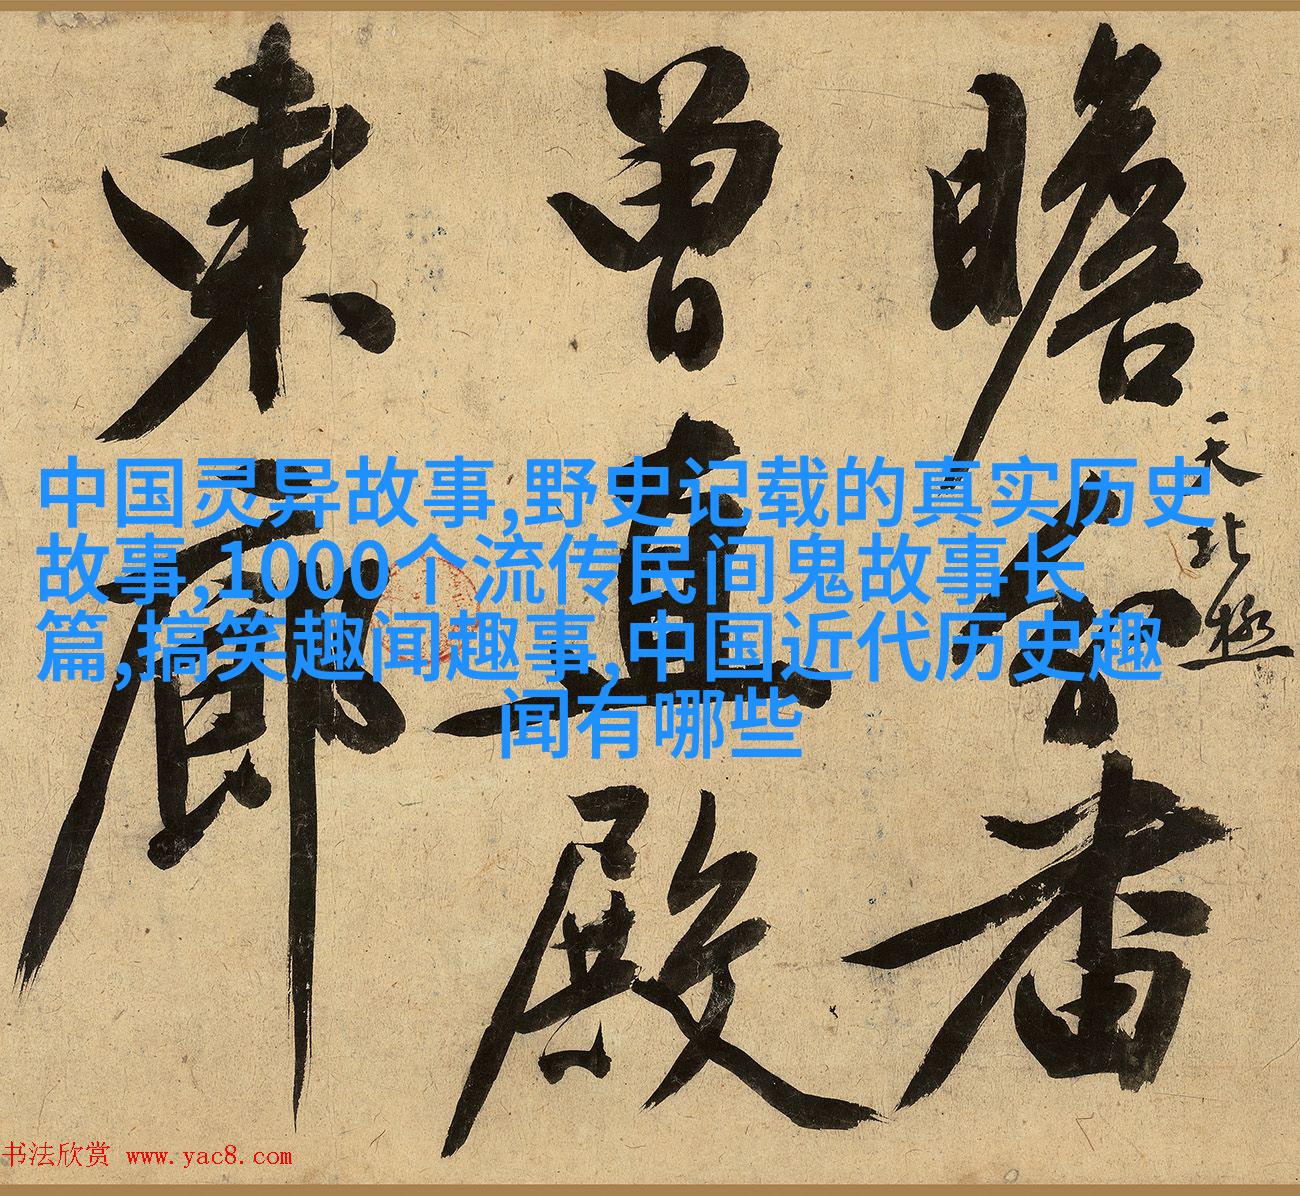 瞻
番
天北極
曾直
殿
東廊
中国灵异故事,野史记载的真实历史
故事,1000个流传民间鬼故事长
篇,搞笑趣闻趣事,中国近代历史趣
闻有哪些
书法欣赏 www.yac8.com